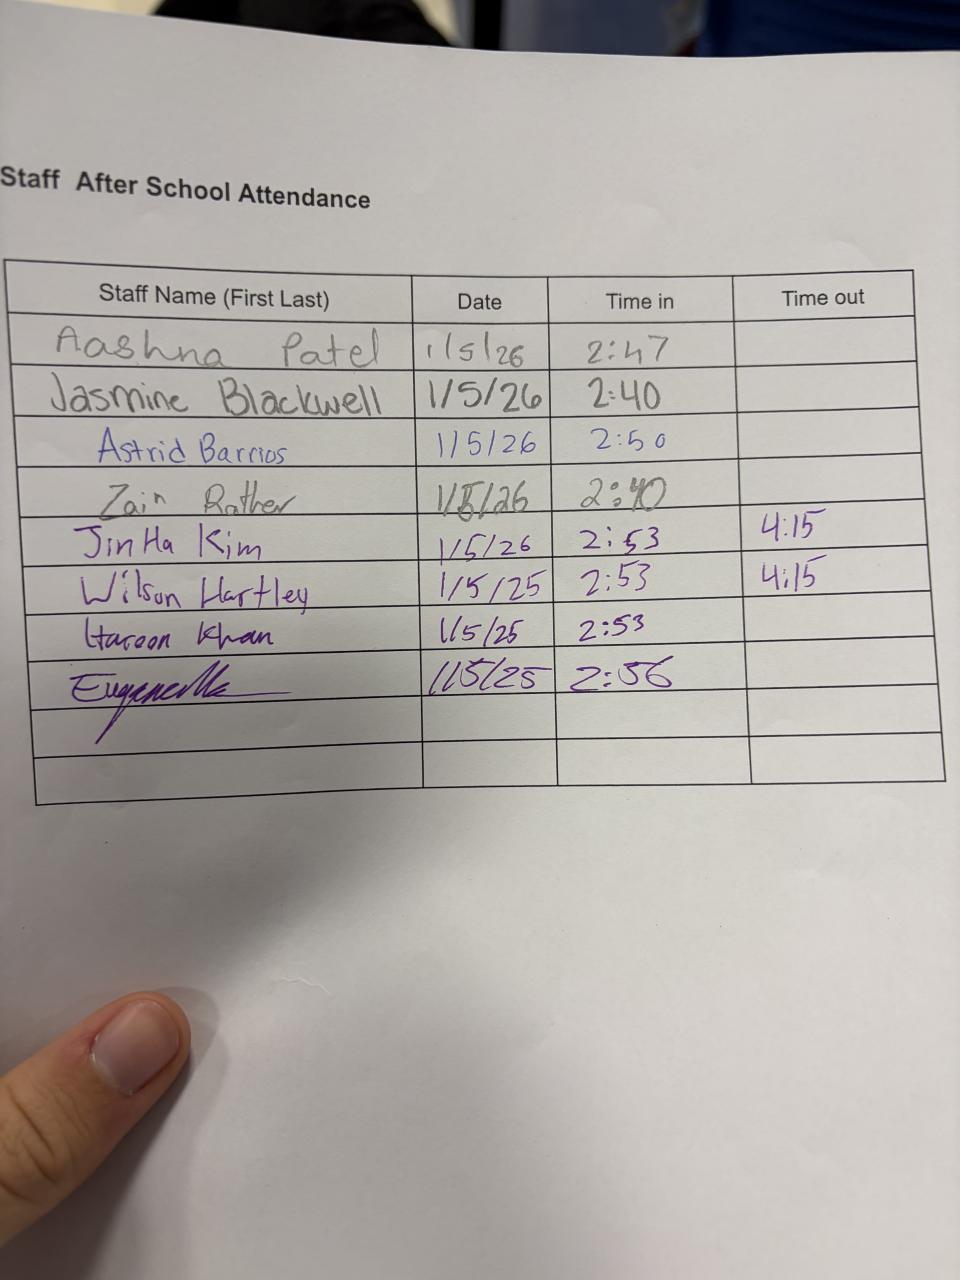 Staff After School Attendance
Staff Name (First Last) Date Time in Time out
Aashna Patel 1/5/26 2:47
Jasmine Blackwell 1/5/26 2:40
Astrid Barrios 1/5/26 2:50
Zain Rather 1/5/26 2:40
JinHa Kim 1/5/26 2:53 4:15
Wilson Hartley 1/5/25 2:53 4:15
Haroon Khan 1/5/25 2:53
1/5/25 2:56